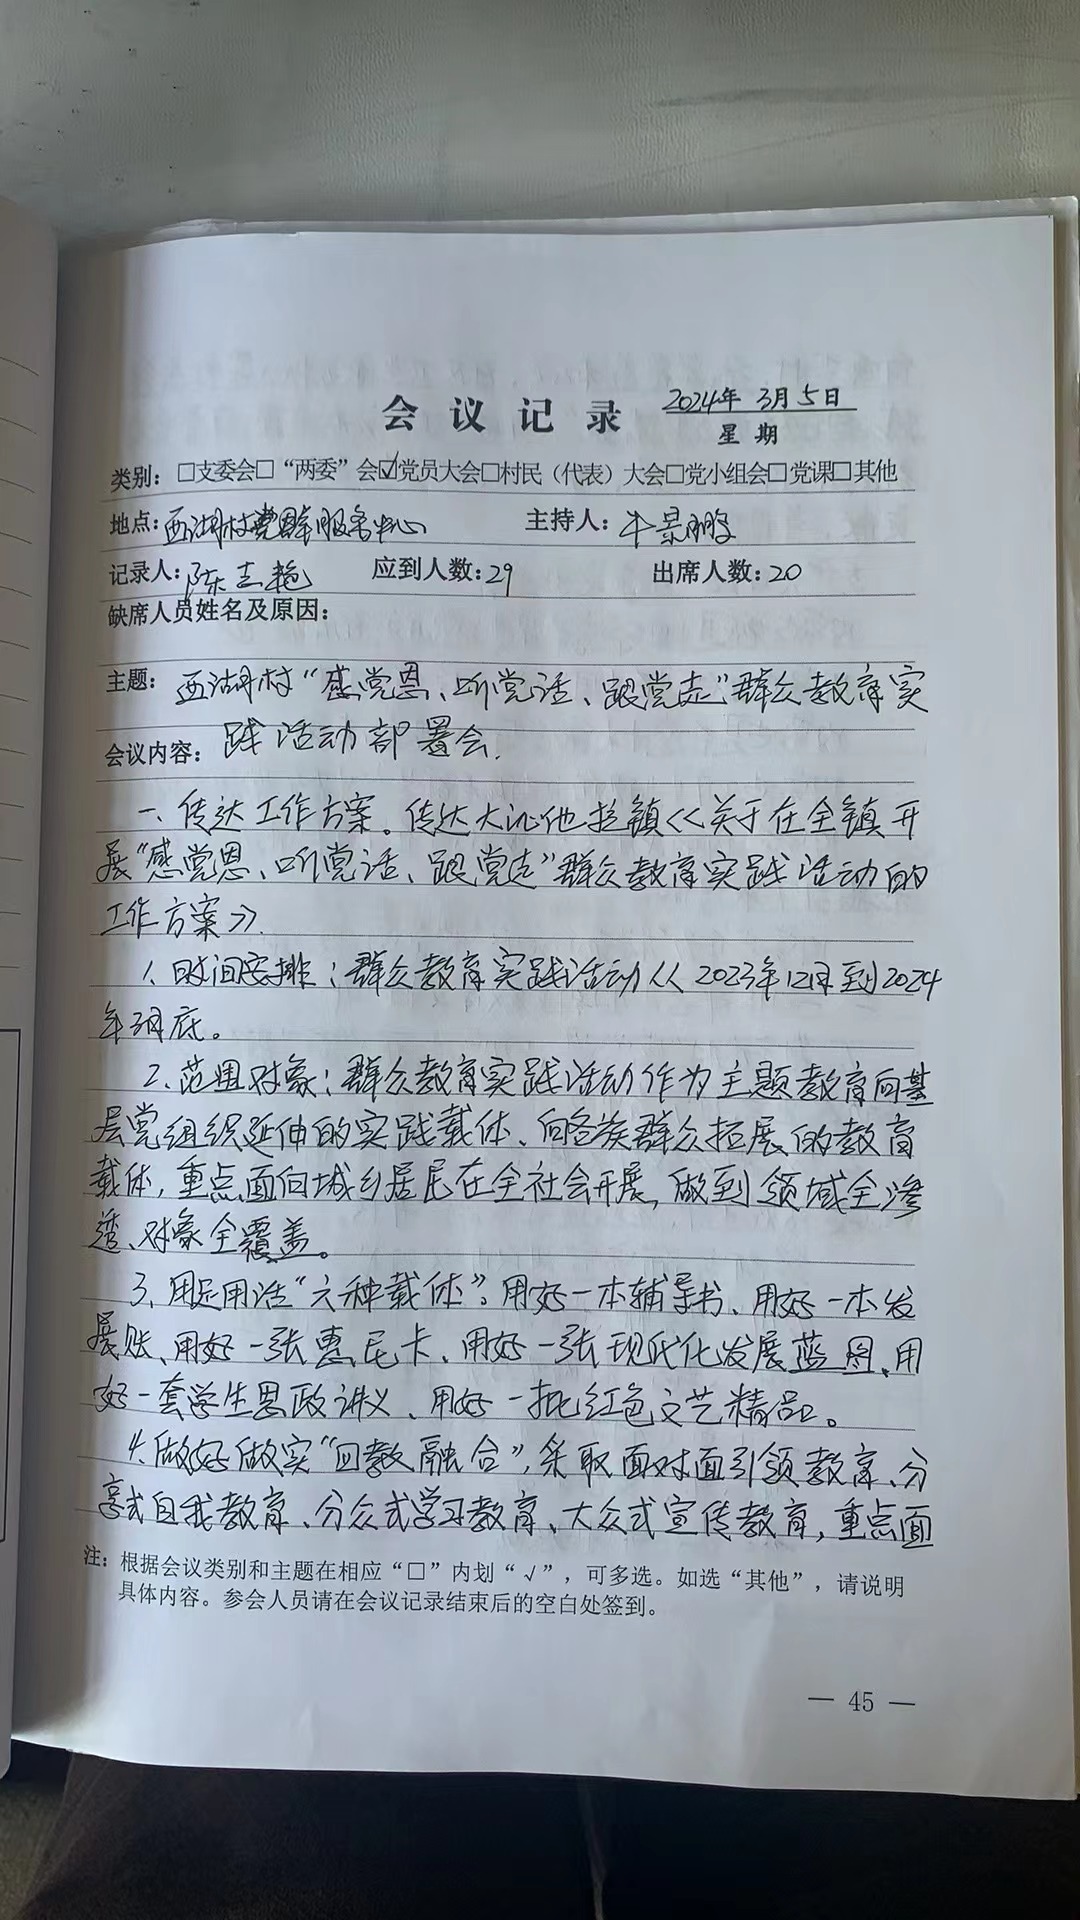 会议记录 2024年 3月5日
星期
类别：□支委会□“两委”会☑党员大会□村民（代表）大会□党小组会□党课□其他
地点：西湖村党群服务中心 主持人：牛景鹏
记录人：陈志艳 应到人数：29 出席人数：20
缺席人员姓名及原因：
主题：西湖村“感党恩、听党话、跟党走”群众教育实
会议内容：践活动部署会.
一、传达工作方案。传达大沁他拉镇《关于在全镇开
展“感党恩、听党话、跟党走”群众教育实践活动的
工作方案》.
1、时间安排：群众教育实践活动从2023年12月到2024
年3月底。
2、范围对象：群众教育实践活动作为主题教育向基
层党组织延伸的实践载体、向各族群众拓展的教育
载体，重点面向城乡居民在全社会开展，做到领域全渗
透、对象全覆盖。
3、用足用活“六种载体”。用好一本辅导书、用好一本发
展账、用好一张惠民卡、用好一张现代化发展蓝图、用
好一套学生思政讲义、用好一批红色文艺精品。
4、做好做实“四教融合”，采取面对面引领教育、分
享式自我教育、分众式学习教育、大众式宣传教育，重点面
注：根据会议类别和主题在相应“□”内划“√”，可多选。如选“其他”，请说明
具体内容。参会人员请在会议记录结束后的空白处签到。
— 45 —